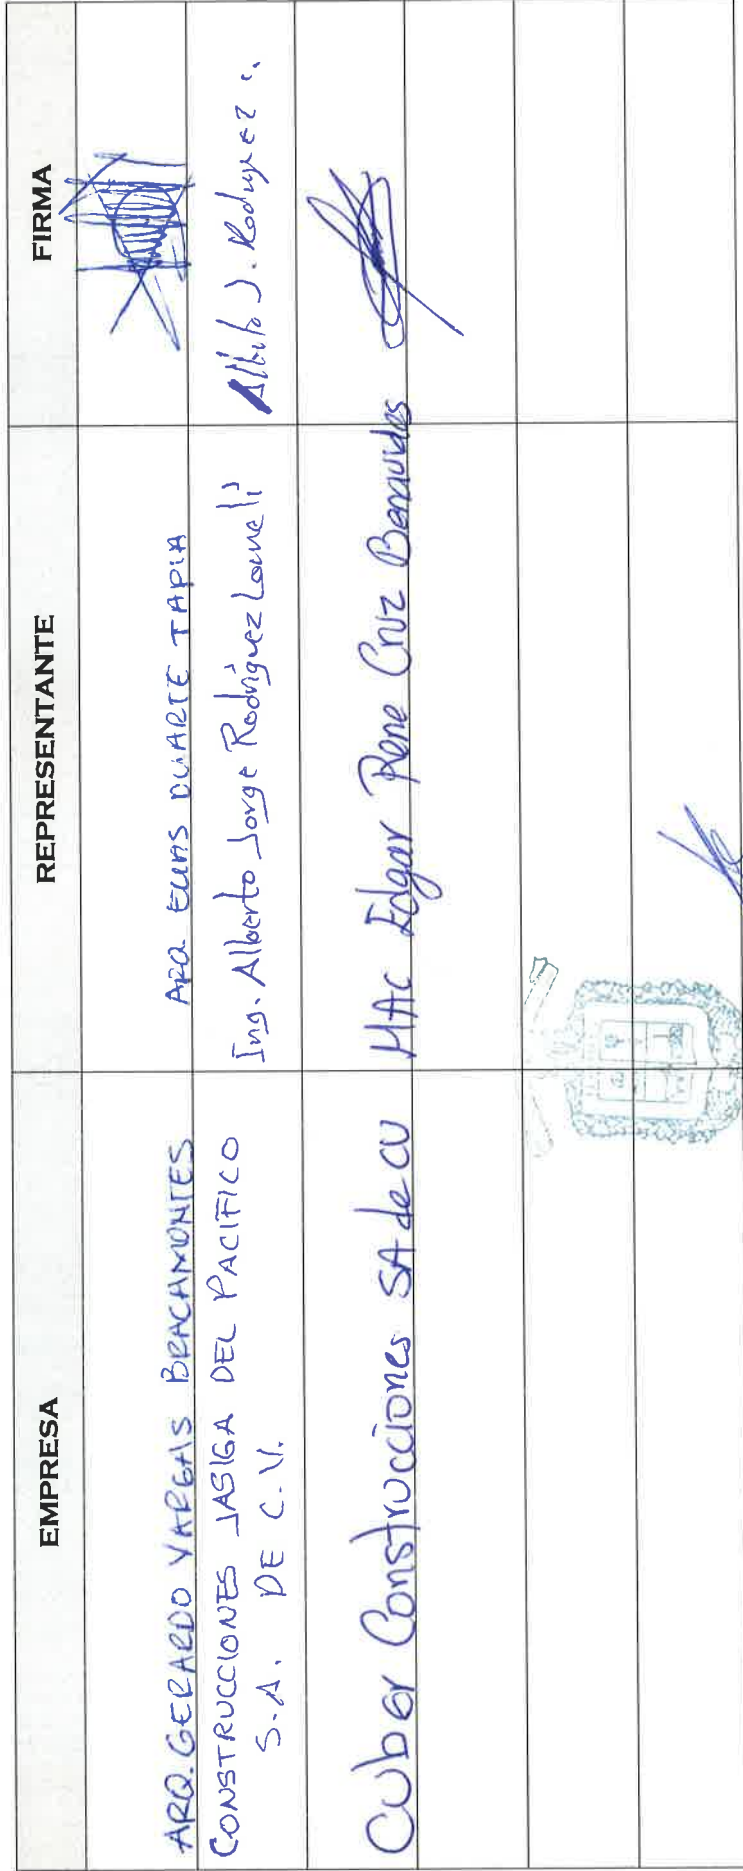 EMPRESA REPRESENTANTE FIRMA
ARQ. GERARDO VARGAS BRACAMONTES ARQ. DUARTE TAPIA
CONSTRUCCIONES JASIGA DEL PACIFICO Ing. Alberto Jorge Rodríguez Lomelí Alberto J. Rodriguez L.
S.A. DE C.V.
Cuber Construcciones SA de CV MAC Edgar Rene Cruz Benavides